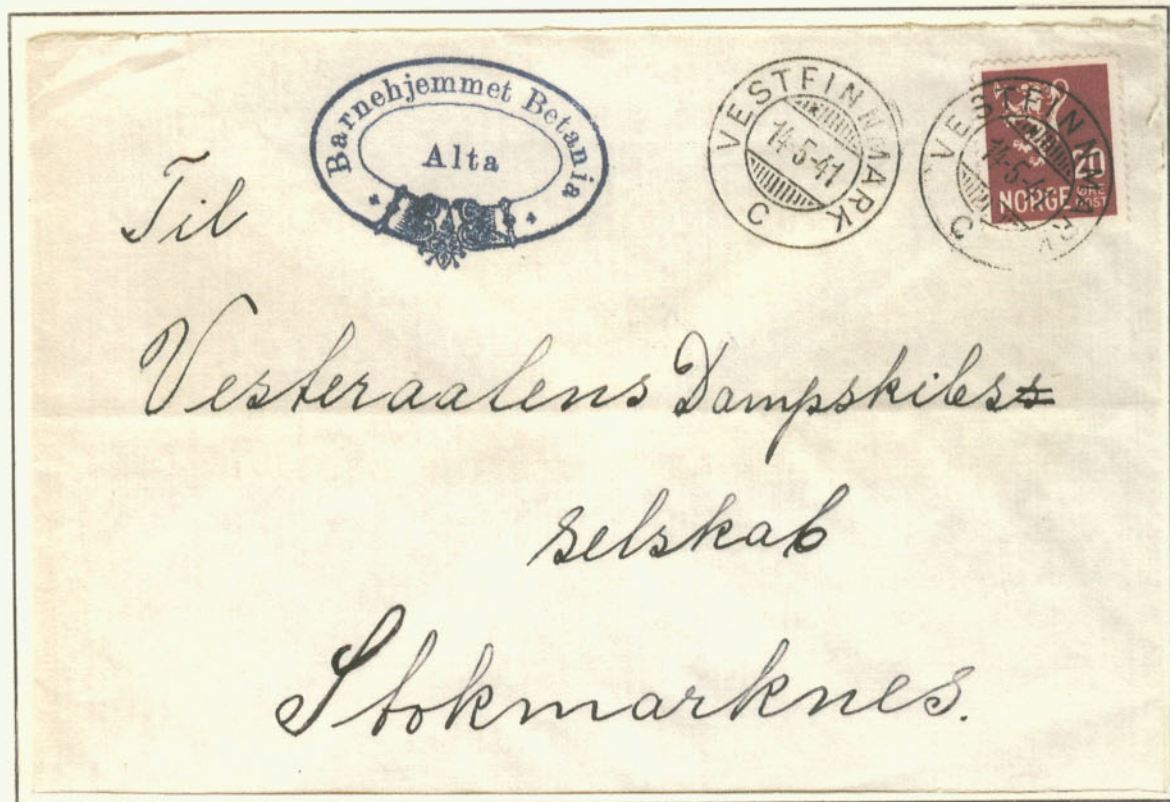 Barnehjemmet Betania
Alta
VESTFINNMARK
14-5-41
C
VESTFINNMARK
14-5-41
C
20
ØRE
NORGE POST
Til
Vesteraalens Dampskibs=
selskab
Stokmarknes.